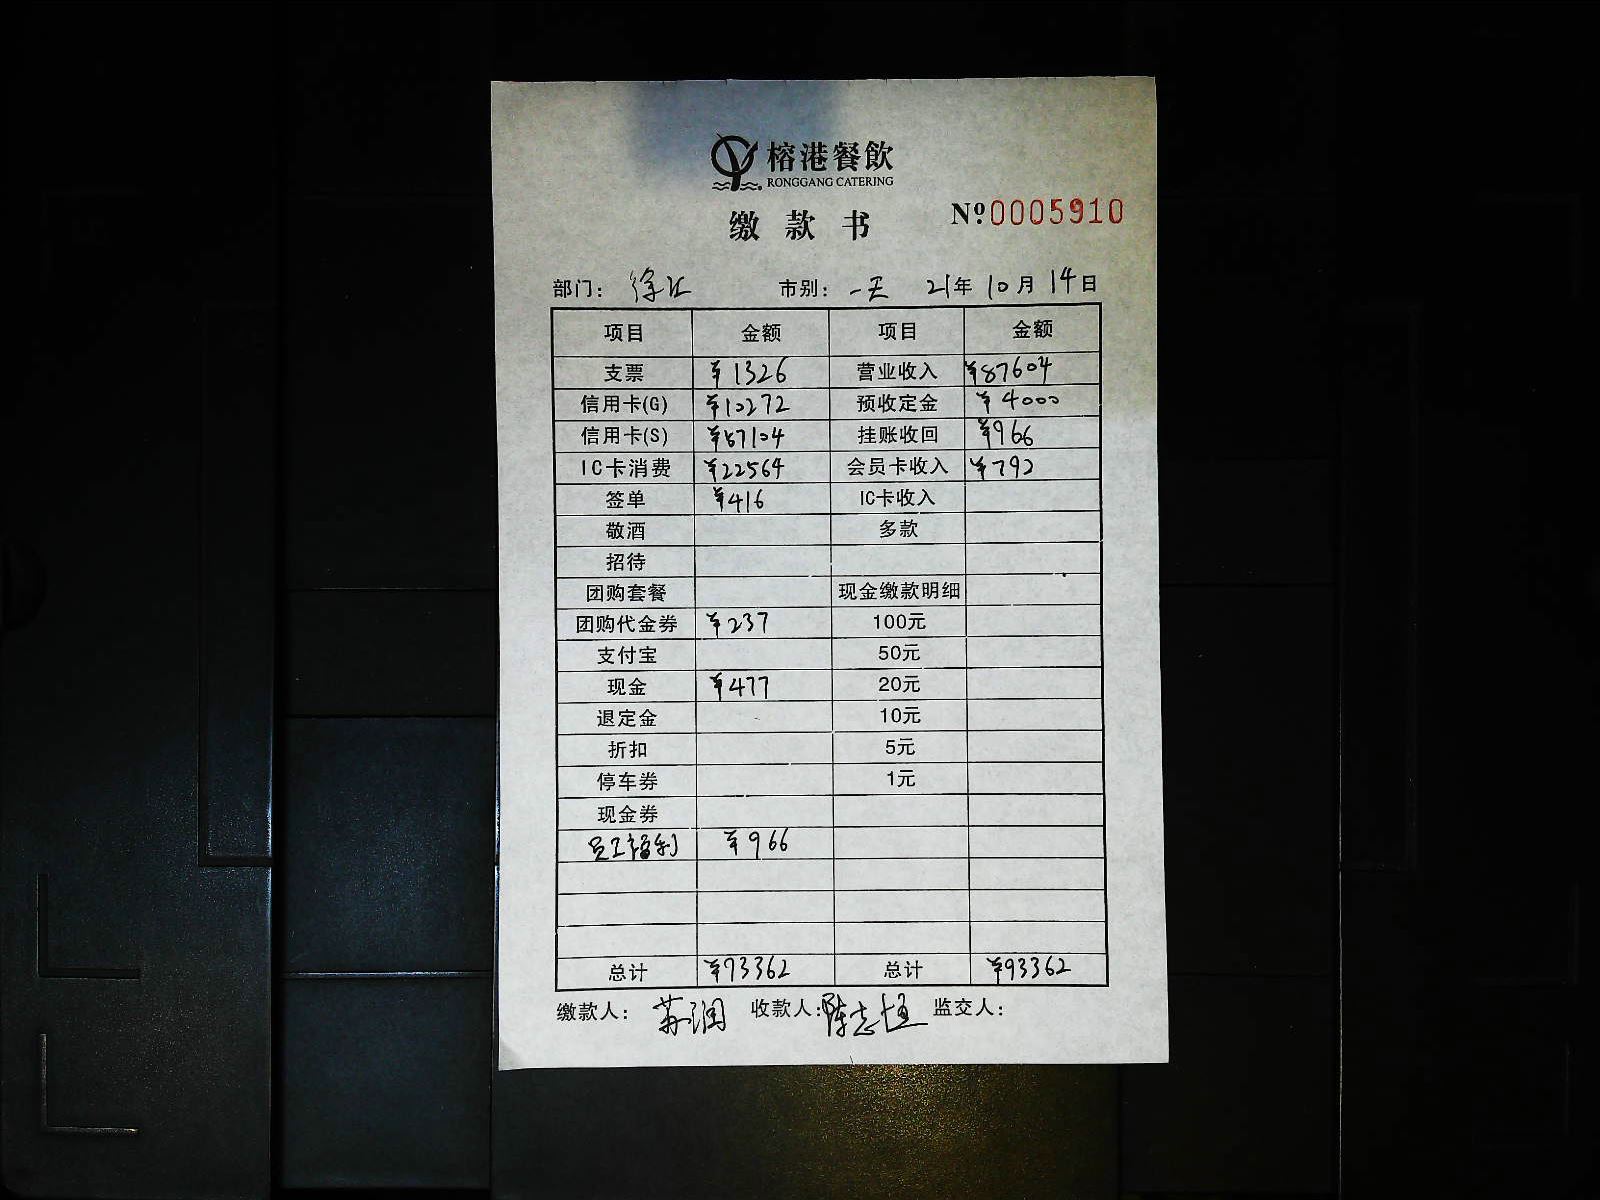 榕港餐飲
RONGGANG CATERING
缴款书 Nº0005910
部门：徐汇 市别：一天 21年10月14日
项目 金额 项目 金额
支票 ¥1326 营业收入 ¥87604
信用卡(G) ¥10272 预收定金 ¥4000
信用卡(S) ¥57104 挂账收回 ¥966
IC卡消费 ¥22564 会员卡收入 ¥792
签单 ¥416 IC卡收入
敬酒 多款
招待
团购套餐 现金缴款明细
团购代金券 ¥237 100元
支付宝 50元
现金 ¥477 20元
退定金 10元
折扣 5元
停车券 1元
现金券
员工福利 ¥966
总计 ¥93362 总计 ¥93362
缴款人：苏润 收款人：陈志恒 监交人：